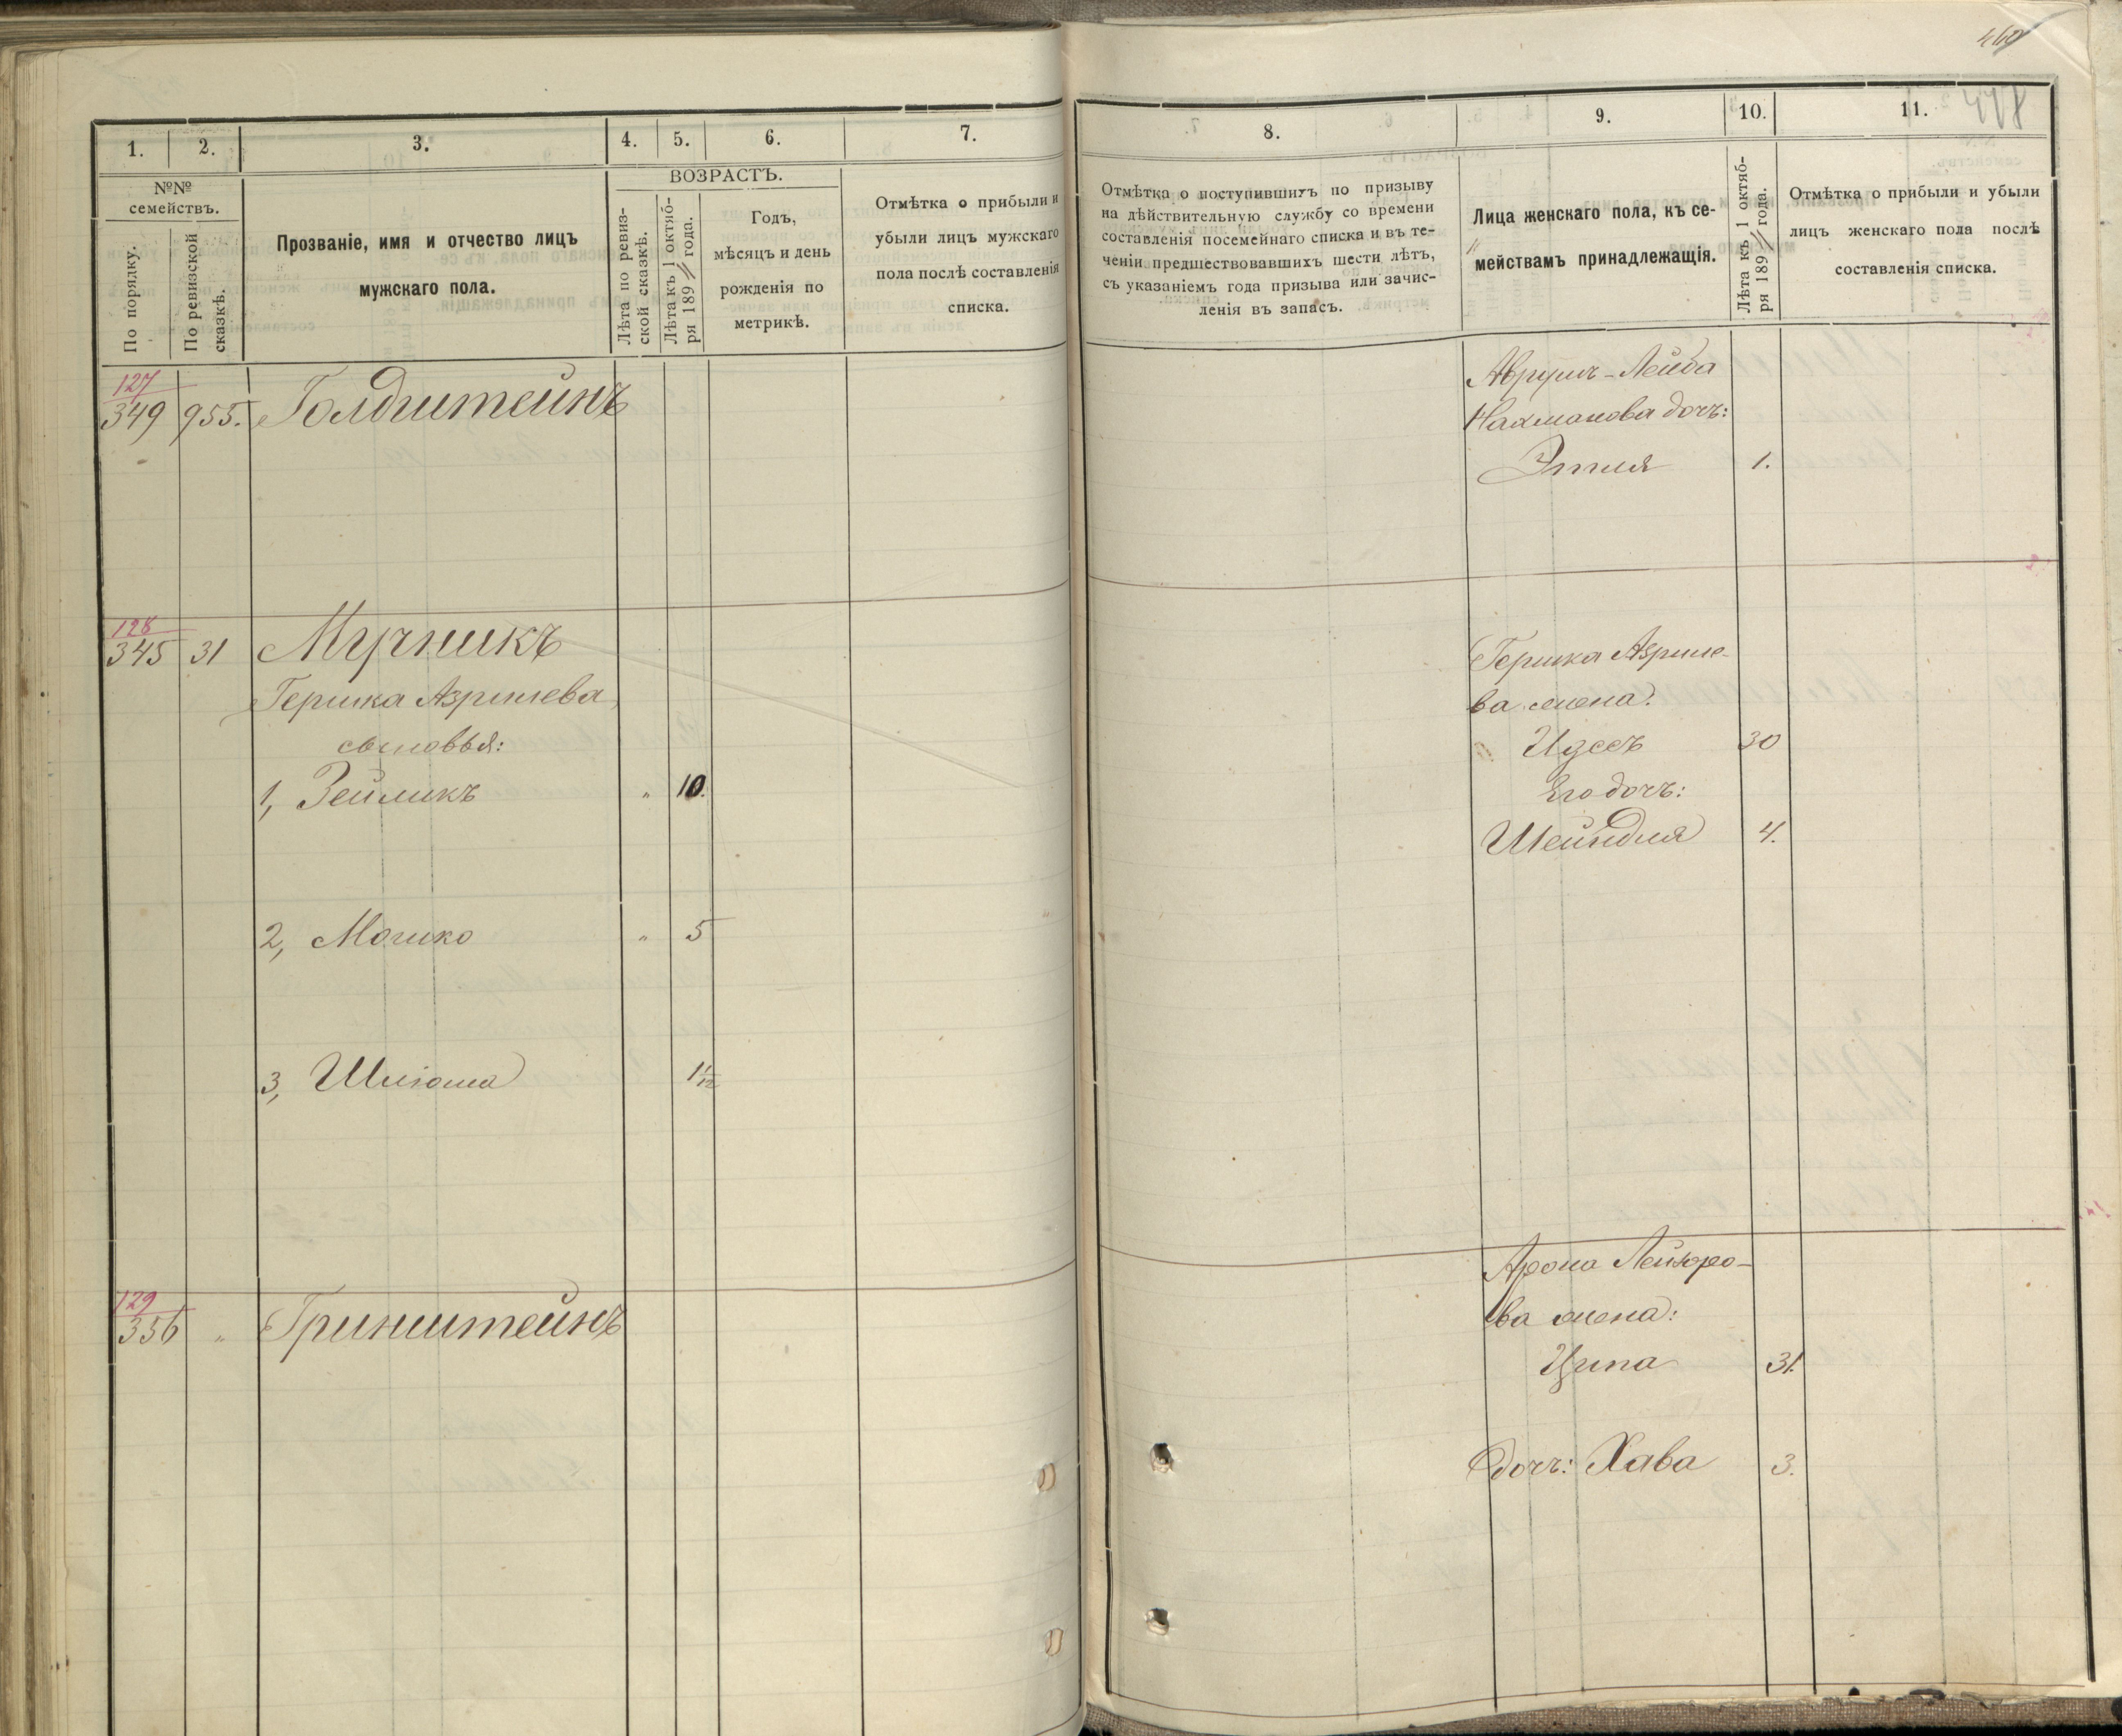 460
478
1. 2. 3. 4. 5. 6. 7.
№№ семействъ.
По порядку.
По ревизской сказкѣ.
Прозваніе, имя и отчество лицъ
мужскаго пола.
ВОЗРАСТЪ.
Лѣта по ревиз-
ской сказкѣ.
Лѣта къ 1 октяб-
ря 189 года.
Годъ,
мѣсяцъ и день
рожденія по
метрикѣ.
Отмѣтка о прибыли и
убыли лицъ мужскаго
пола послѣ составленія
списка.
127
349 955. Голдштейнъ
128
345 31 Мучникъ
Гершка Азрилева
сыновья:
1, Зейликъ " 10.
2, Мошко " 5
3, Шліома 1 1/12
129
356 " Гринштейнъ
8. 9. 10. 11.
Отмѣтка о поступившихъ по призыву
на дѣйствительную службу со времени
составленія посемейнаго списка и въ те-
ченіи предшествовавшихъ шести лѣтъ,
съ указаніемъ года призыва или зачис-
ленія въ запасъ.
Лица женскаго пола, къ се-
мействамъ принадлежащія.
Лѣта къ 1 октяб-
ря 189 года.
Отмѣтка о прибыли и убыли
лицъ женскаго пола послѣ
составленія списка.
Аврумъ-Лейба
Нахманова дочь:
Этля 1.
Гершка Азриле-
ва жена:
Идесъ 30
Его дочь:
Шейндля 4.
Арона Лейзоро-
ва жена:
Ципа 31.
дочь: Хава 3.